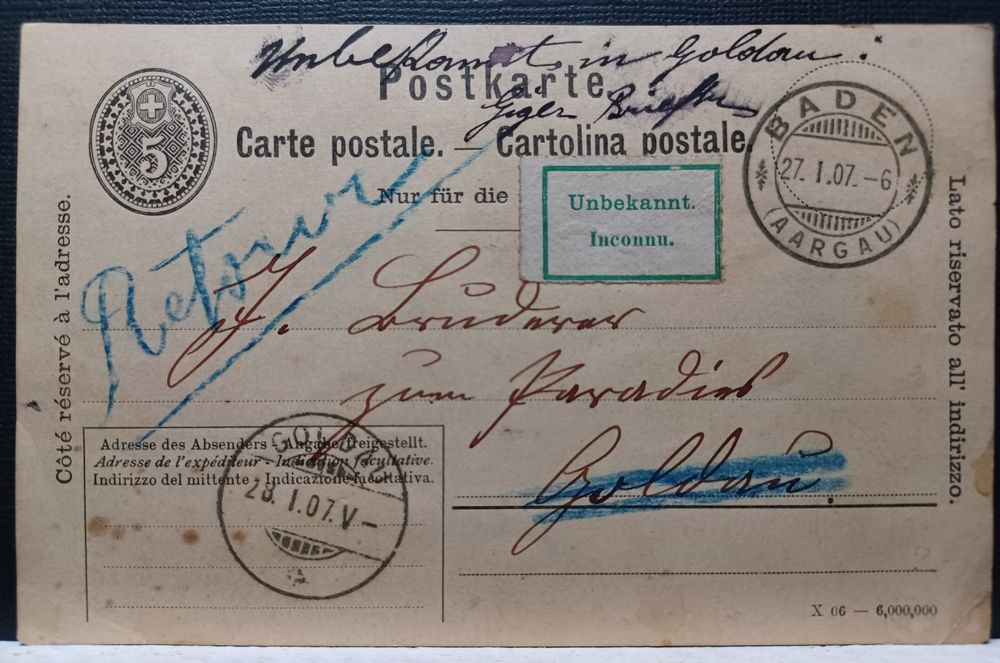 Unbekannt in Goldau.
Postkarte.
Giger Brieftr
Carte postale. — Cartolina postale.
Nur für die
5
Unbekannt.
Inconnu.
BADEN
27. I. 07. -6
(AARGAU)
Retour
Côté réservé à l'adresse.
Lato riservato all' indirizzo.
J. Bruderer
zum Paradies
Goldau.
Adresse des Absenders - Angabe freigestellt.
Adresse de l'expéditeur - Indication facultative.
Indirizzo del mittente - Indicazione facoltativa.
GOLDAU
28. I. 07. V-
X 06 — 6,000,000